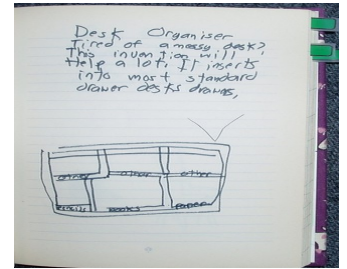 Desk Organiser
Tired of a messy desk?
This invention will
Help a lot. It inserts
into most standard
drawer desks draws,
other other other
pencils books paper